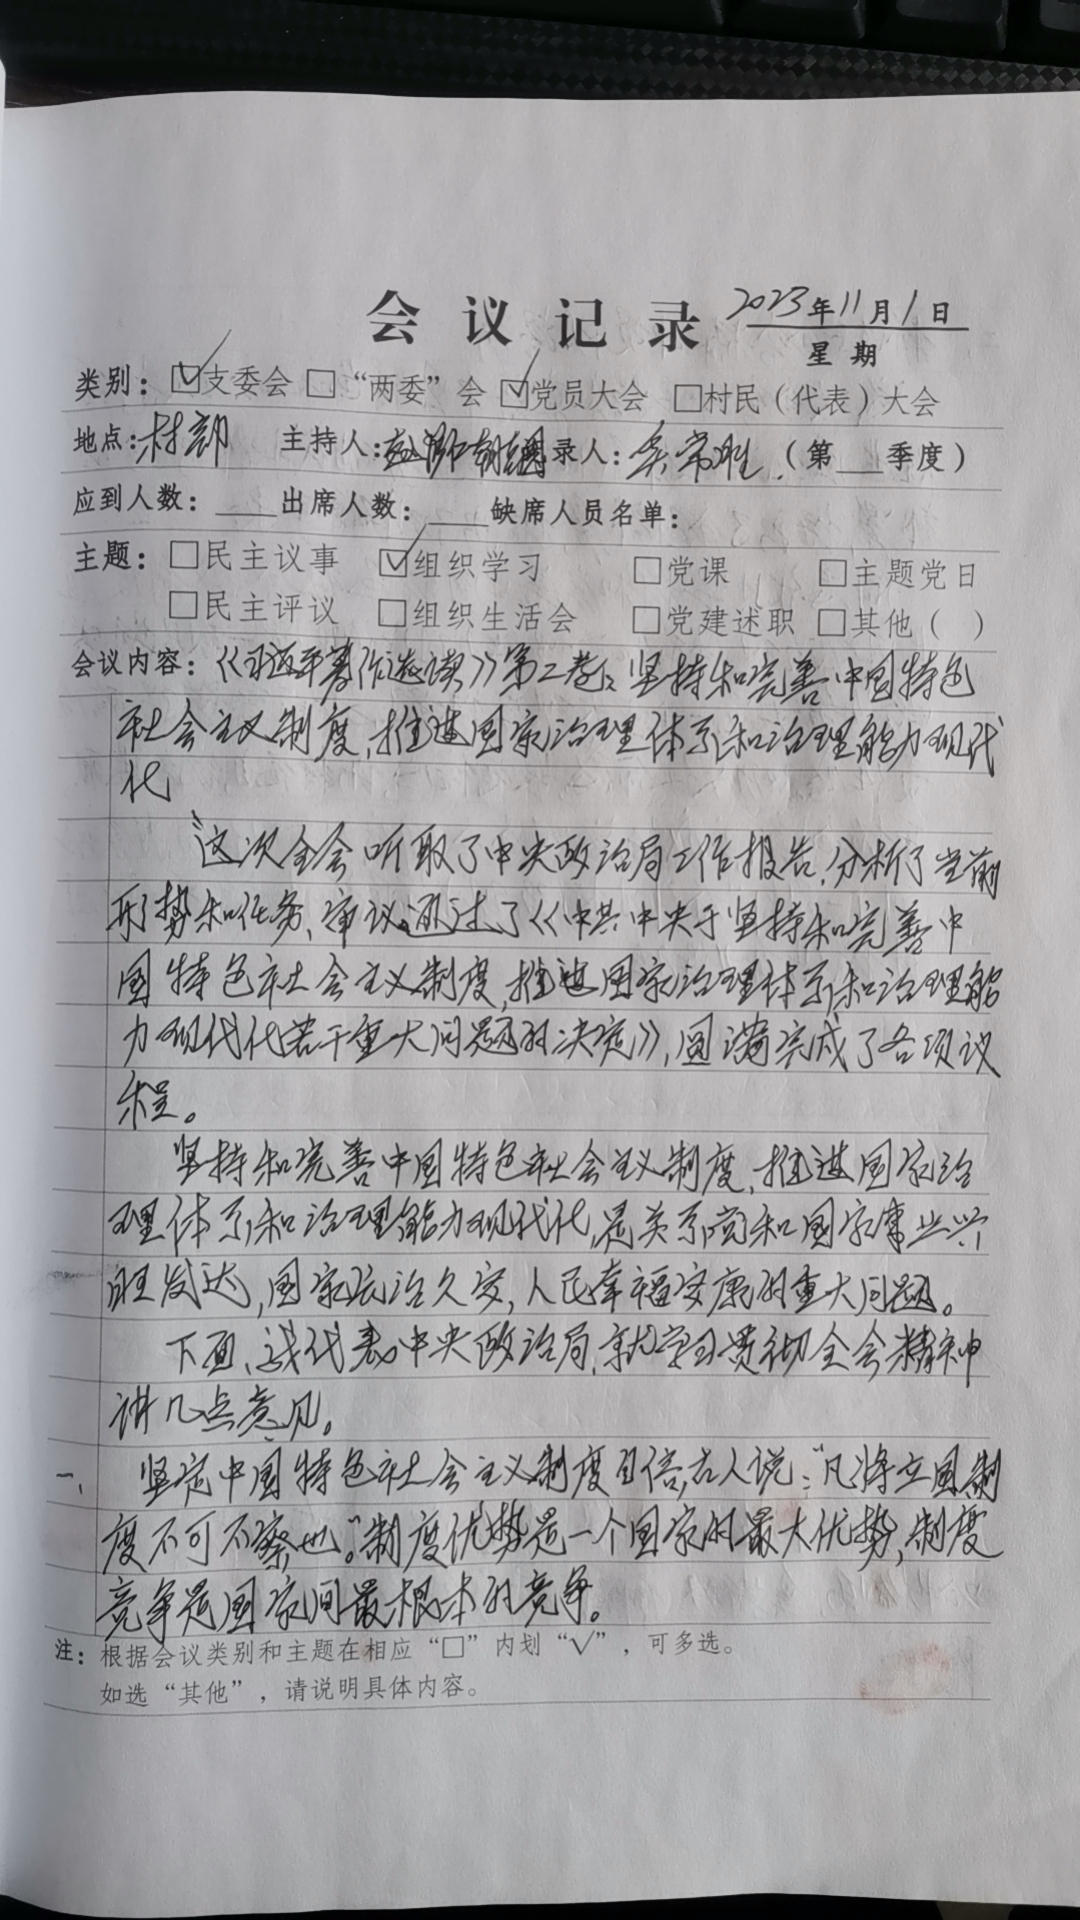 会议记录 2023年11月1日
星期
类别：☑支委会 □“两委”会 ☑党员大会 □村民（代表）大会
地点：村部 主持人： 录人： （第___季度）
应到人数：____出席人数：____缺席人员名单：
主题：□民主议事 ☑组织学习 □党课 □主题党日
□民主评议 □组织生活会 □党建述职 □其他（ ）
会议内容：《习近平著作选读》第二卷：坚持和完善中国特色
社会主义制度，推进国家治理体系和治理能力现代
化
“这次全会听取了中央政治局工作报告，分析了当前
形势和任务，审议通过了《中共中央于坚持和完善中
国特色社会主义制度，推进国家治理体系和治理能
力现代化若干重大问题的决定》，圆满完成了各项议
程。
坚持和完善中国特色社会主义制度，推进国家治
理体系和治理能力现代化，是关系党和国家事业兴
旺发达，国家长治久安，人民幸福安康的重大问题。
下面，我代表中央政治局，就学习贯彻全会精神
讲几点意见。
一、坚定中国特色社会主义制度自信，古人说：“凡将立国，制
度不可不察也。”制度优势是一个国家的最大优势，制度
竞争是国家间最根本的竞争。
注：根据会议类别和主题在相应“□”内划“√”，可多选。
如选“其他”，请说明具体内容。